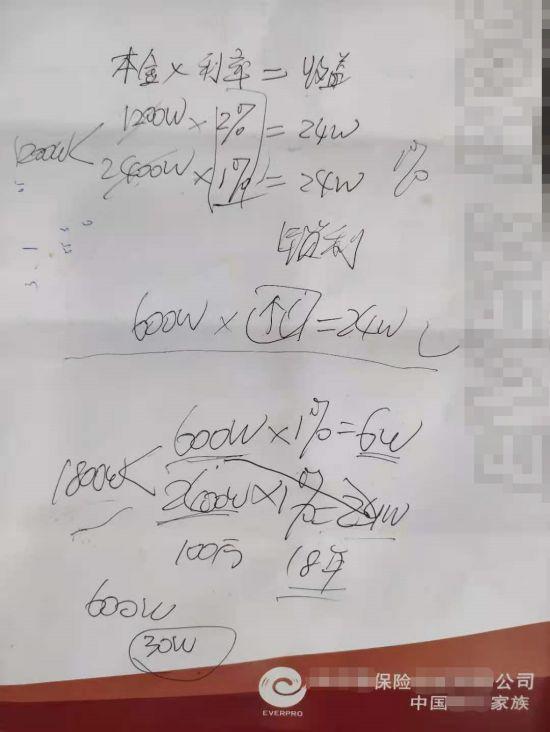 本金 × 利率 = 收益
1200W × 2% = 24W
1200W < 2400W × 1% = 24W 1%
锁利
600W × ↑ = 24W
600W × 1% = 6W
1800W < 2400W × 1% = 24W
100万 18年
600W
30W
保险 公司
中国 家族
EVERPRO